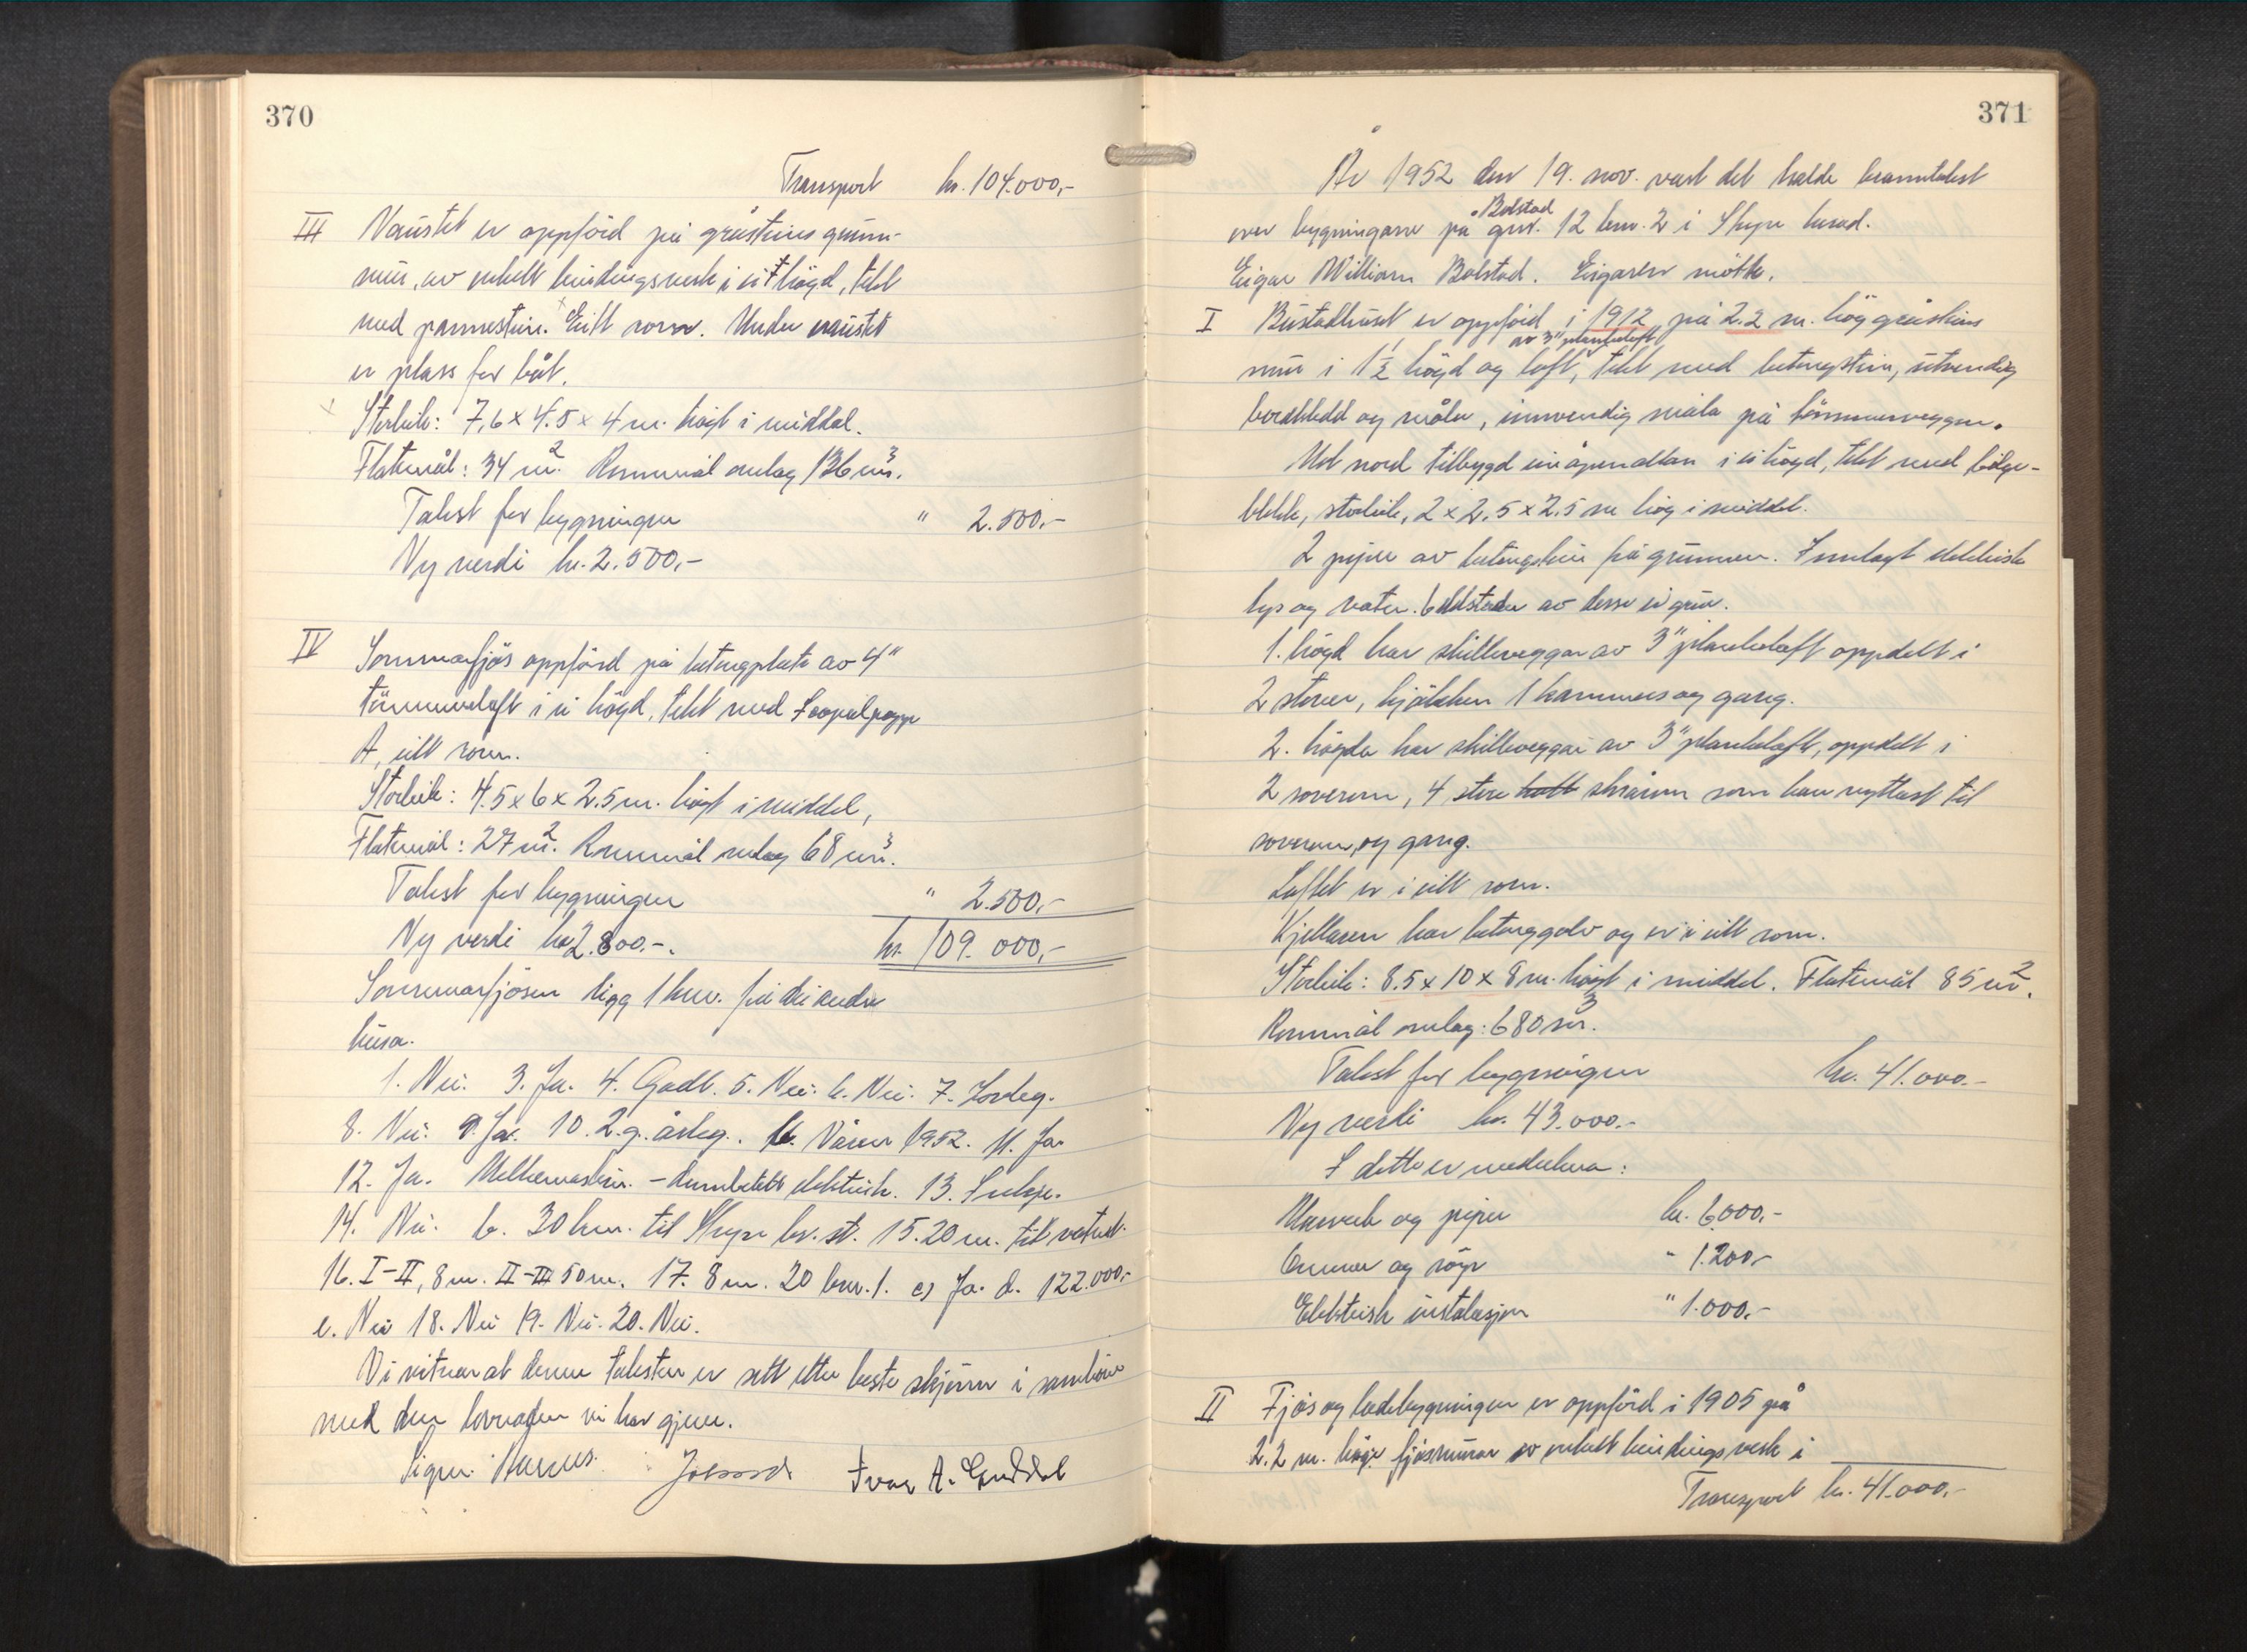 370
Transport kr. 104.000,-
III Naustet er oppförd på gråsteins grunn-
mur, av enkelt bindingsverk i ei högd, tekt
med pannestein. Eitt rom. Under naustet
er plass for båt.
Storleik: 7,6 x 4.5 x 4 m. högt i middel.
Flatemål: 34 m². Rommål omlag 136 m³.
Takst for bygningen " 2.500,-
Ny verdi kr. 2.500,-
IV Sommarfjös oppförd på betongplate av 4"
tömmerloft i ei högd, tekt med Icopalpapp
A, eitt rom.
Storleik: 4.5 x 6 x 2.5 m. högt i middel,
Flatemål: 27 m². Rommål omlag 68 m³.
Takst for bygningen " 2.500,-
Ny verdi kr 2.800.-. kr. 109.000,-
Sommarfjösen ligg 1 km. frå dei andre
husa.
1. Nei. 3. Ja. 4. Godt. 5. Nei. 6. Nei. 7. Jordeg.
8. Nei. 9. Ja. 10. 2. g. årleg. Våren 1952. 11. Ja.
12. Ja. Melkemaskin. - elektrisk. 13.
14. Nei. b. 30 km. til st. 15. 20 m. til vatnet.
16. I-II, 8 m. II-III 50 m. 17. 8 m. 20 bnr. 1. c) Ja. d. 122.000,-
e. Nei 18. Nei 19. Nei. 20. Nei.
Vi vitnar at denne taksten er sett etter beste skjönn i samhöve
med den lovnaden vi har gjeve.
Sigm. Ivar A.
371
År 1952 den 19. nov. vart det halde branntakst
Bolstad
over bygningane på gnr. 12 bnr. 2 i herad.
Eigar William Bolstad. Eigaren mötte.
I Bustadhuset er oppförd i 1912 på 2.2 m. hög gråsteins
av 3" plankeloft
mur i 1½ högd og loft, tekt med betongstein, utvendig
bordkledd og måla, innvendig måla på tömmerveggen.
Mot nord tilbygd ein åpen altan i ei högd, tekt med bölge-
blekk, storleik, 2 x 2.5 x 2.5 m hög i middel.
2 piper av betongstein frå grunnen. Innlagt elektrisk
lys og vatn. 6 eldstader av desse ei grue.
1. högd har skilleveggar av 3" plankeloft oppdelt i
2 stover, kjökken 1 kammers og gang.
2. högda har skilleveggar av 3" plankeloft, oppdelt i
2 soverom, 4 store skråsrom som kan nyttast til
soverom, og gang.
Loftet er i eitt rom.
Kjellaren har betonggolv og er i eitt rom.
Storleik: 8.5 x 10 x 8 m. högt i middel. Flatemål 85 m².
Rommål omlag: 680 m³.
Takst for bygningen kr. 41.000.-
Ny verdi kr. 43.000.-
I dette er medrekna:
Murverk og piper kr. 6.000,-
Omnar og röyr " 1.200,-
Elektrisk installasjon " 1.000.-
II Fjös og lödebygningen er oppförd i 1905 på
2.2 m. höge fjösmurar av enkelt bindingsverk i
Transport kr. 41.000.-